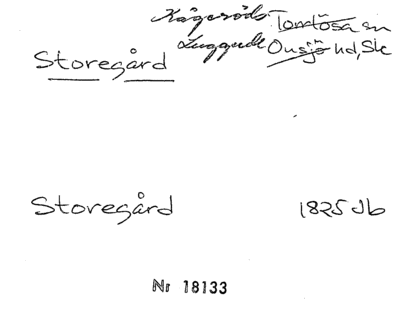 Kågeröds Tomtösa sn
Luggude Onsjö hd, Sk
Storegård
Storegård 1825 Jb
Nr 18133